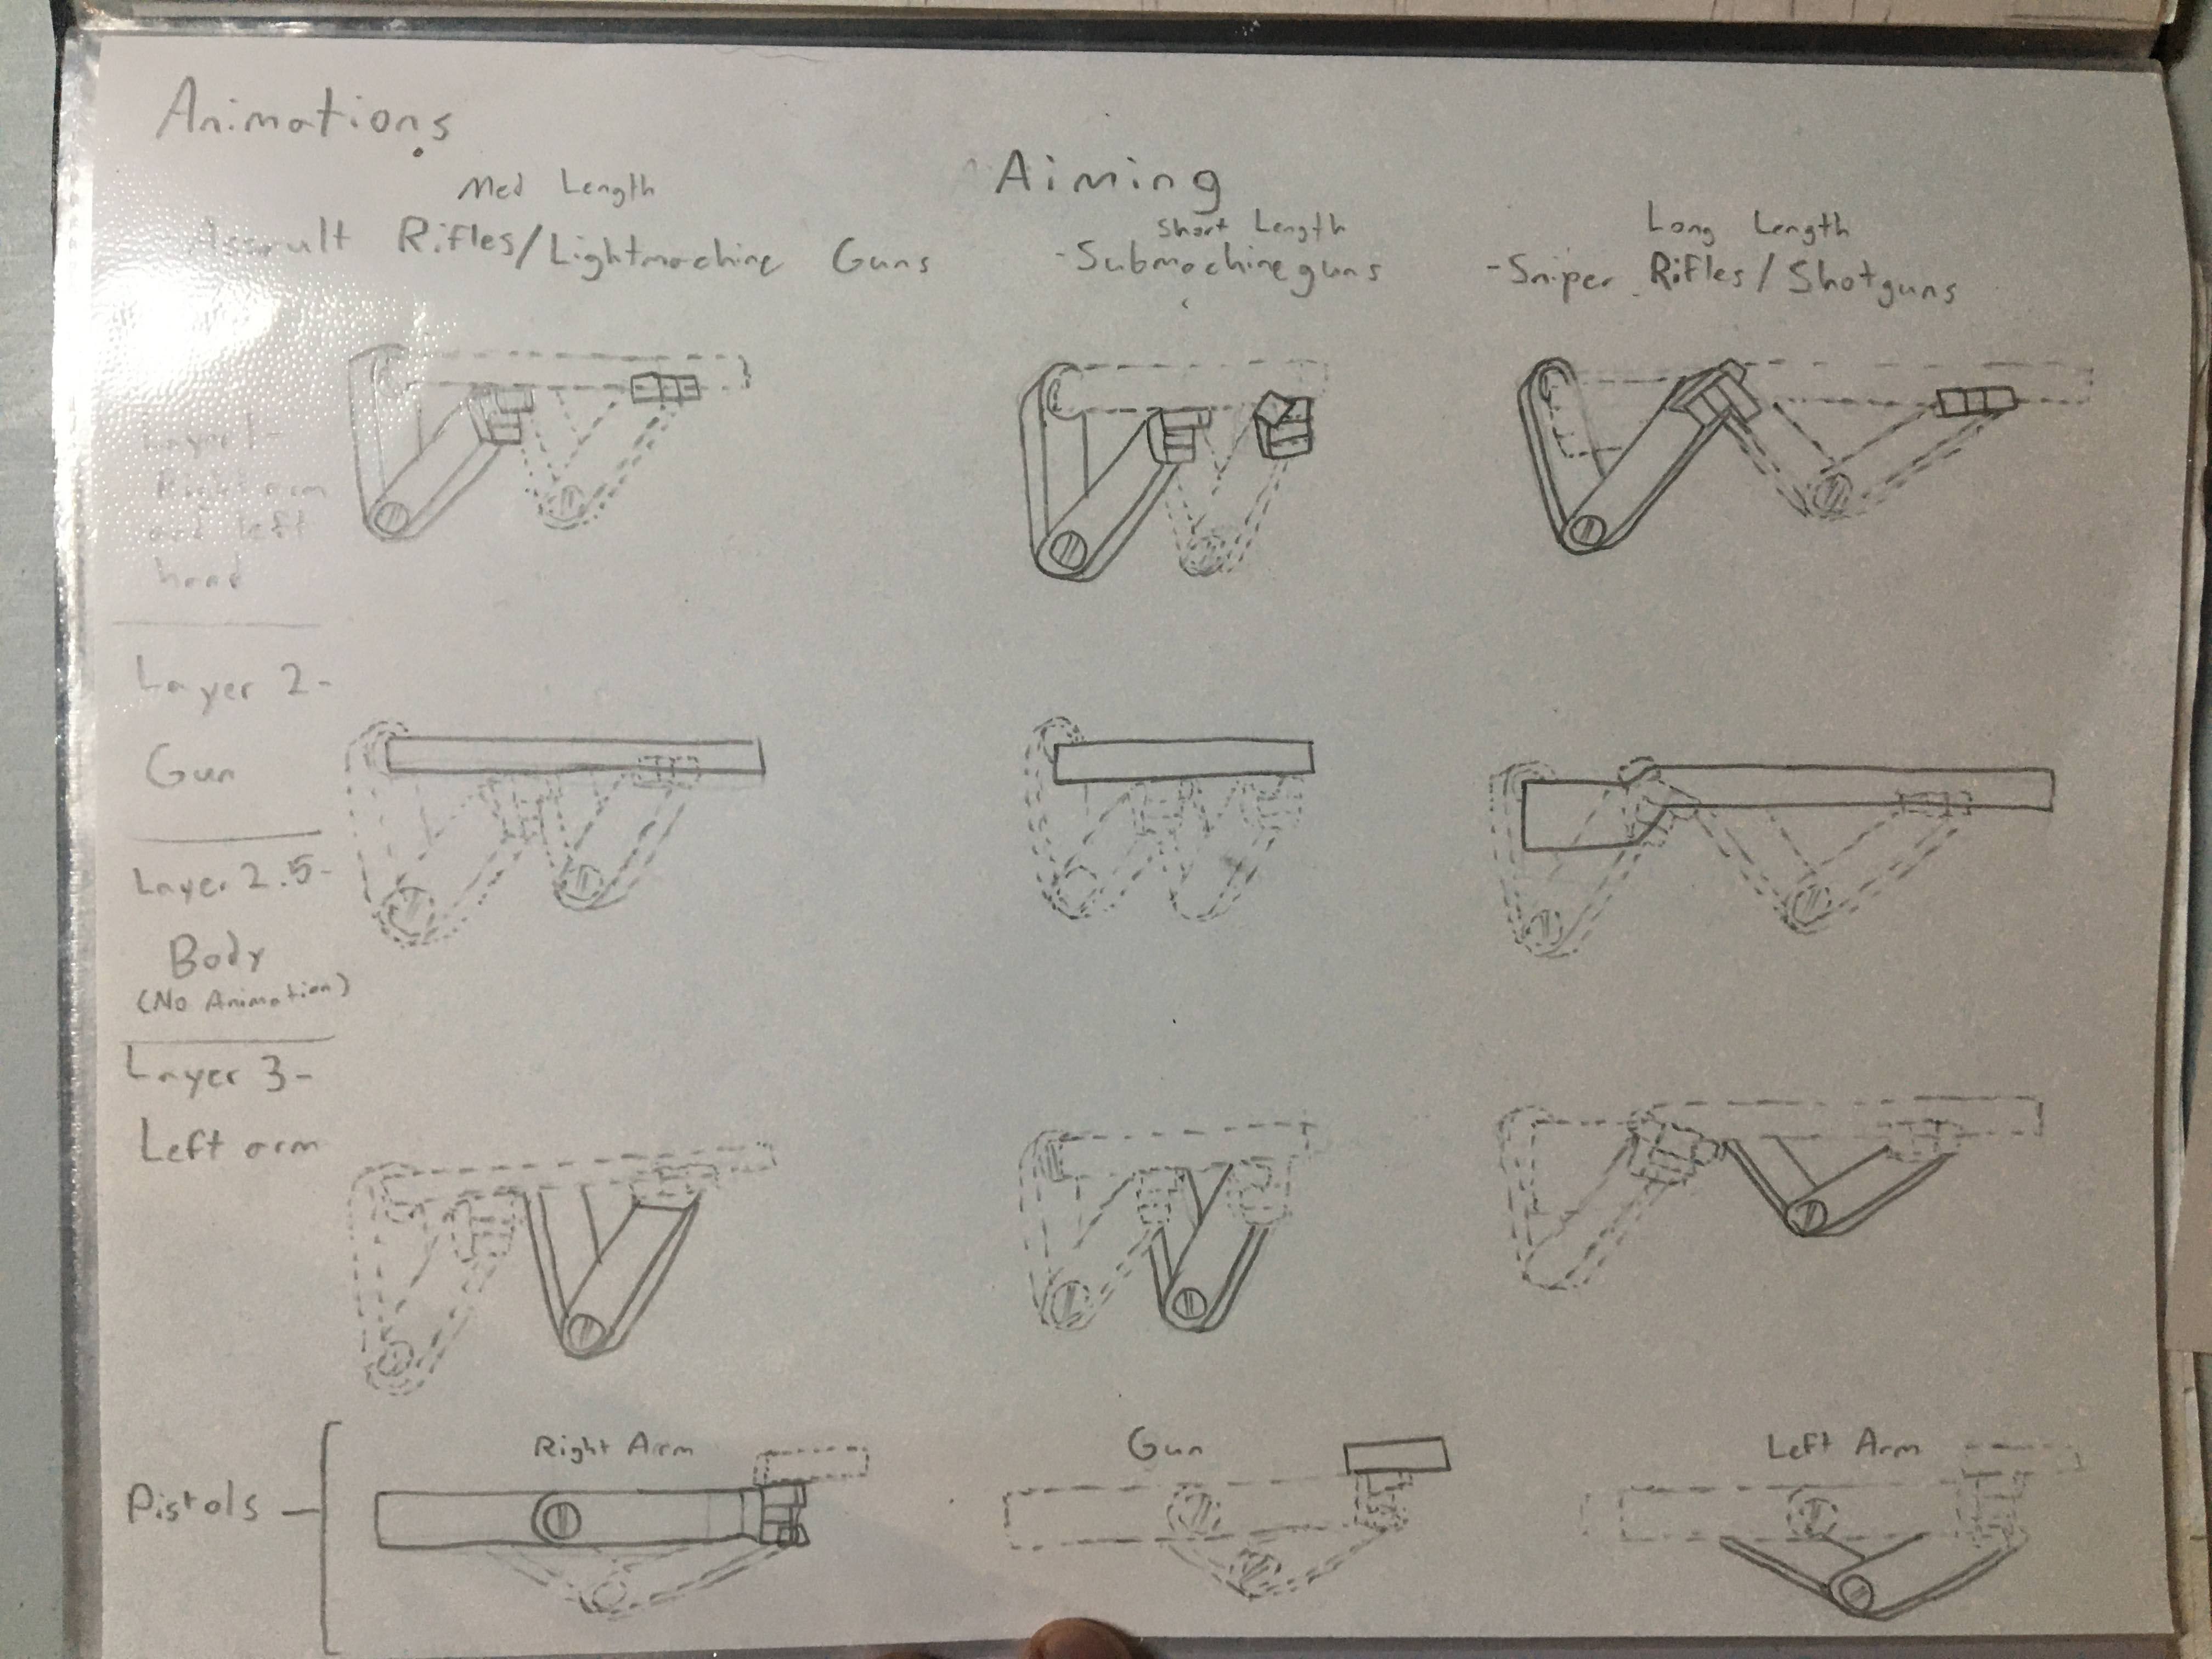 Animations
Aiming
Med Length
Assault Rifles/Lightmachine Guns
Short Length
-Submachineguns
Long Length
-Sniper Rifles/Shotguns
Layer 1-
Right arm
and left
hand
Layer 2-
Gun
Layer 2.5-
Body
(No Animation)
Layer 3-
Left arm
Pistols
Right Arm
Gun
Left Arm